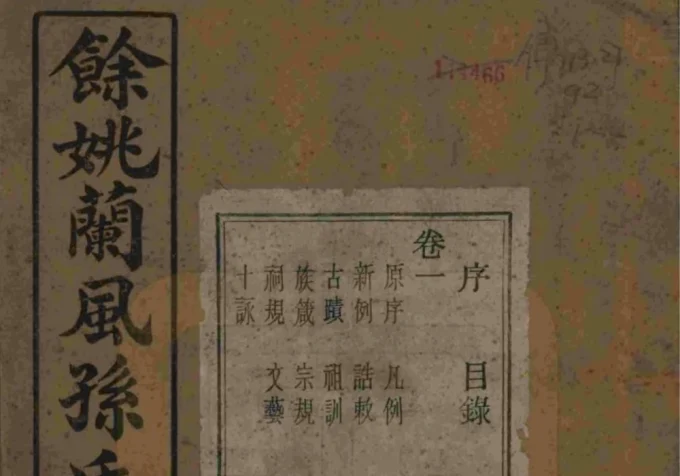 序 目錄
卷一
原序 凡例
新例 誥敕
古蹟 祖訓
族箴 宗規
祠規 文藝
十詠
餘姚蘭風孫